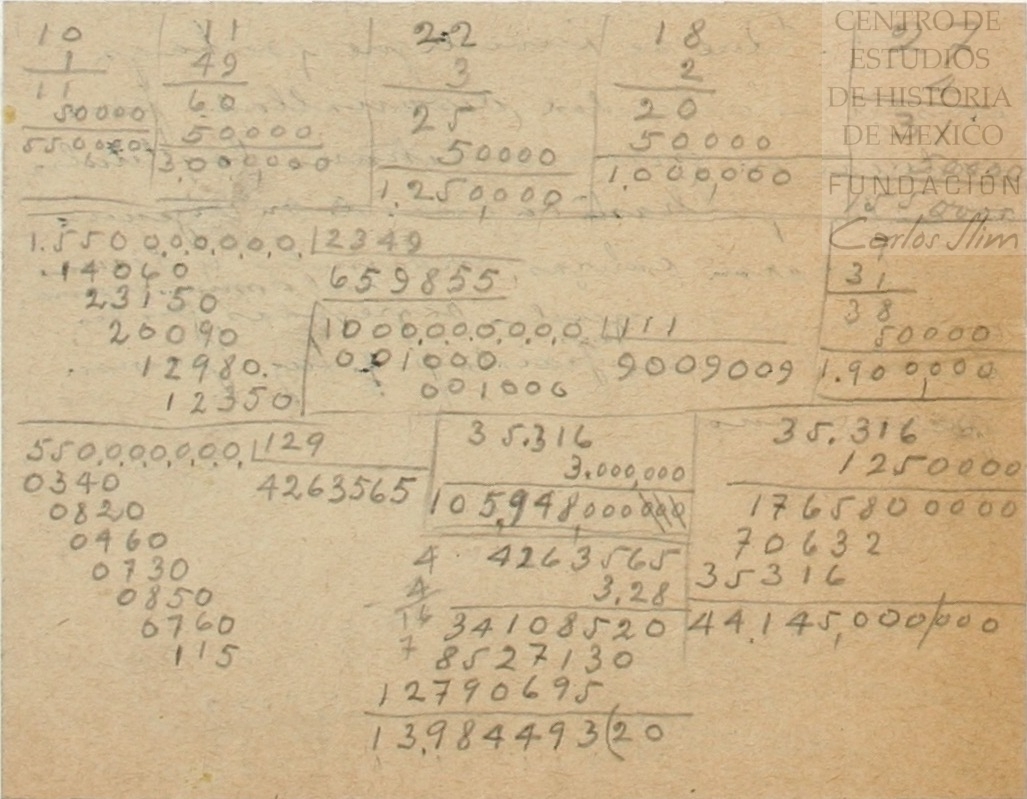 10
1
11
50000
550000
11
49
60
50000
3,000,000
22
3
25
50000
1,250,000
18
2
20
50000
1,000,000
CENTRO DE
ESTUDIOS
DE HISTORIA
DE MEXICO
FUNDACIÓN
Carlos Slim
50000
31
38
50000
1.900,000
1.550 0,0,0,0,0,0, 2349
14060
23150
20090
12980
12350
659855
1000,0,0,0,0,0,0 111
001000
001000
9009009
550,0,0,0,0,0,0, 129
0340
0820
0460
0730
0850
0760
115
4263565
35.316
3.000,000
105,948,000000
4
4
16
7
4263565
3.28
34108520
8527130
12790695
13,984493(20
35.316
1250000
1765800000
70632
35316
44,145,000/000